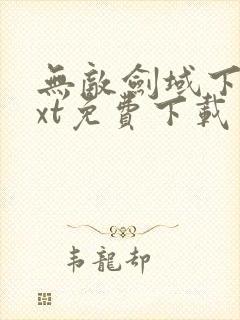 無敵劍域下
xt免費下載
韦龍却